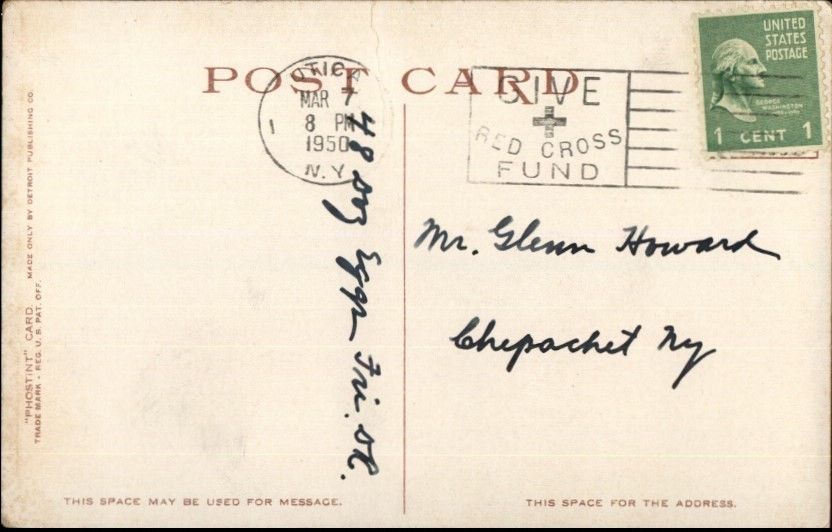 POST CARD
UTICA
MAR 1
8 PM
1950
N.Y.
1
GIVE
RED CROSS
FUND
UNITED
STATES
POSTAGE
GEORGE
WASHINGTON
1 CENT 1
48 doz Eggs Fri. OK.
Mr. Glenn Howard
Chepachet Ny
"PHOSTINT" CARD. MADE ONLY BY DETROIT PUBLISHING CO.
TRADE MARK - REG. U.S. PAT. OFF.
THIS SPACE MAY BE USED FOR MESSAGE.
THIS SPACE FOR THE ADDRESS.